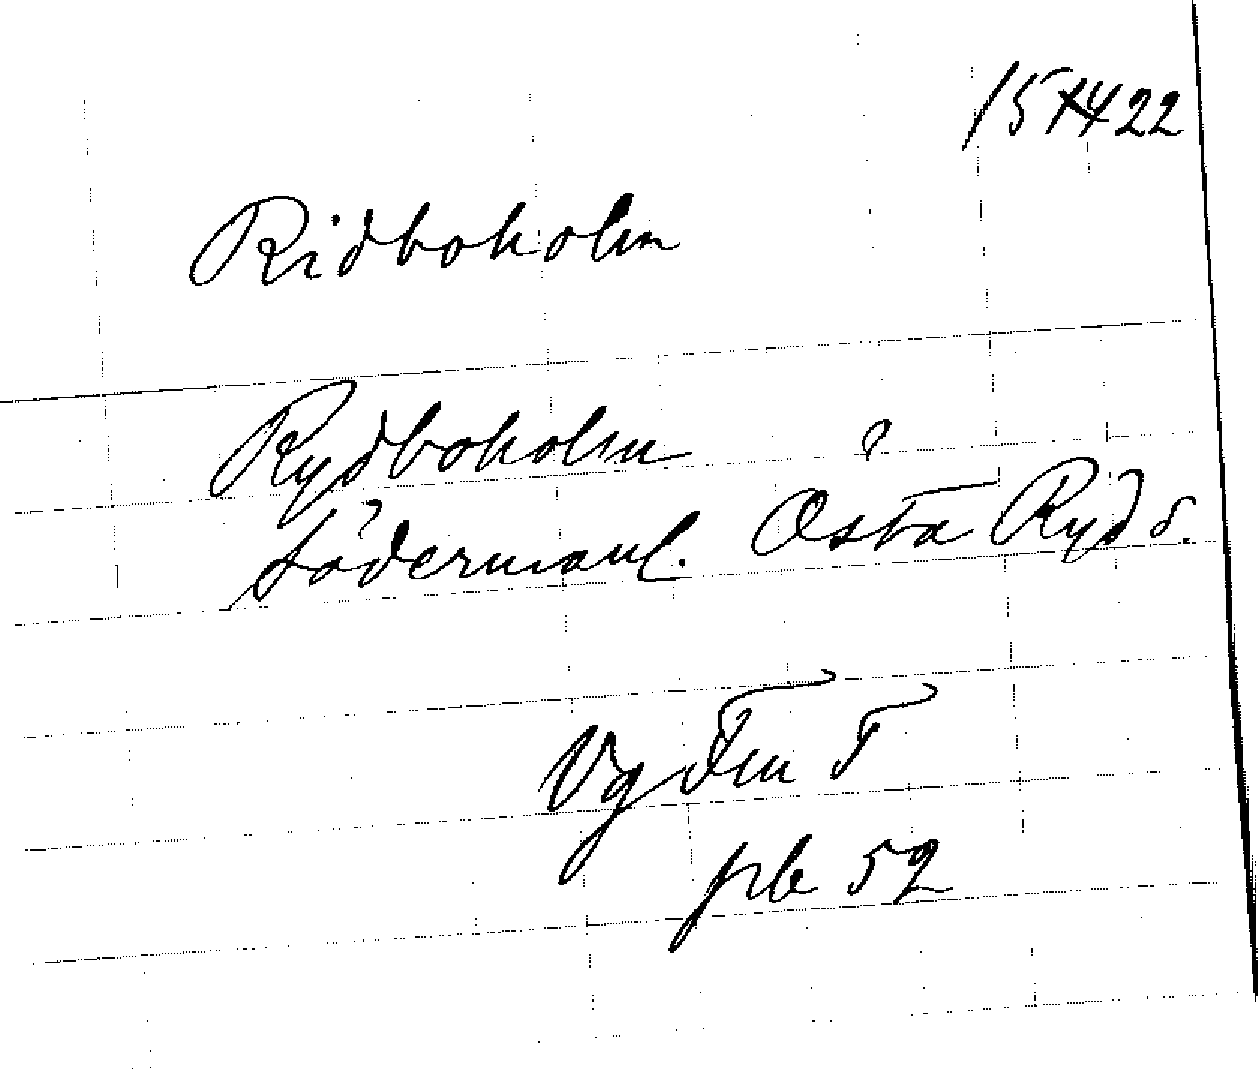 Ridboholm
Rydboholm ?
Södermanl. Östra Ryd s.
Vg Fm F
pb 52